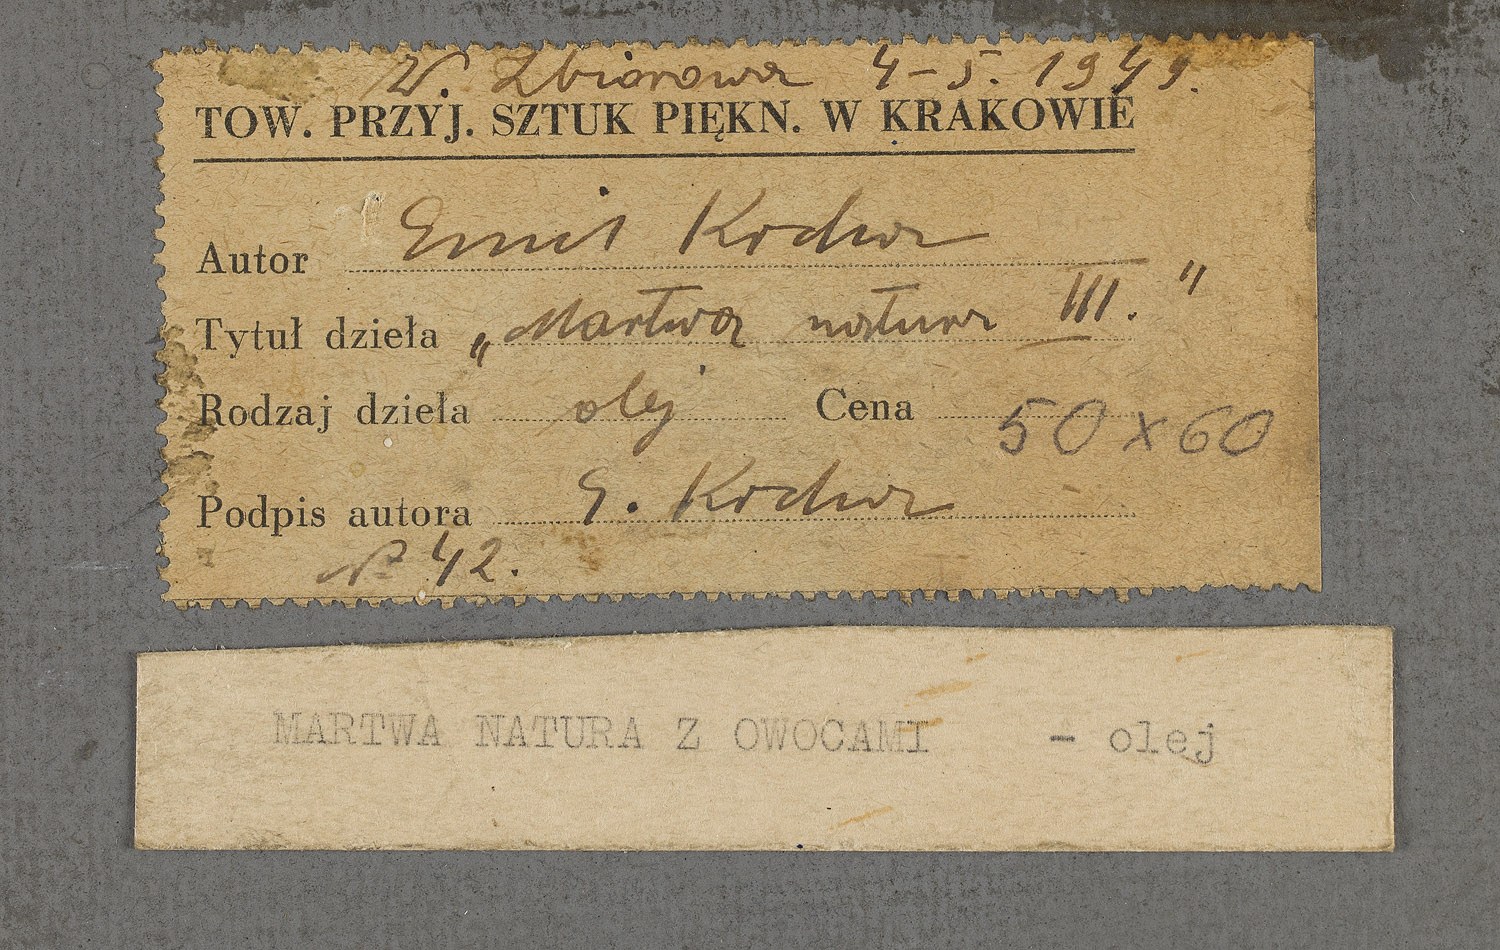 W. Zbiorowa 4-5. 1949.
TOW. PRZYJ. SZTUK PIĘKN. W KRAKOWIE
Autor Emil Krcha
Tytuł dzieła „Martwa natura III."
Rodzaj dzieła olej Cena 50 x 60
Podpis autora E. Krcha
№ 42.
MARTWA NATURA Z OWOCAMI - olej